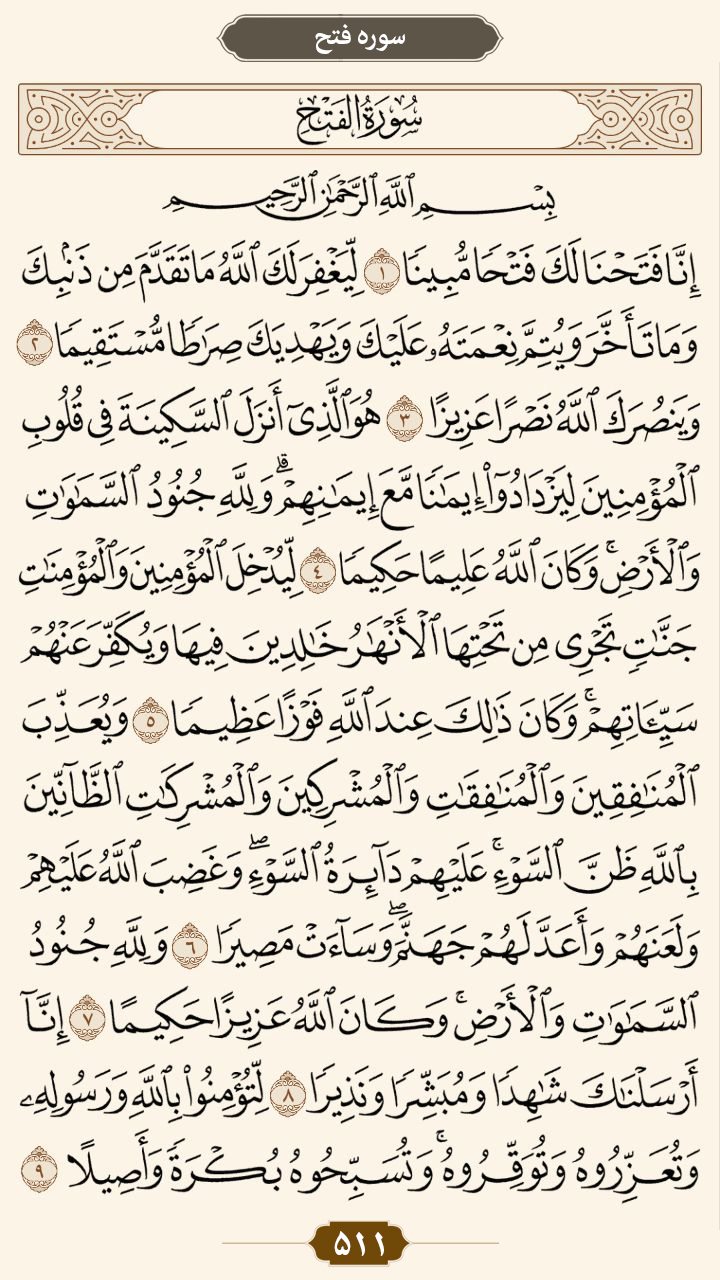 سوره فتح
سُورَةُ الفَتْحِ
بِسْمِ ٱللَّهِ ٱلرَّحْمَٰنِ ٱلرَّحِيمِ
إِنَّا فَتَحْنَا لَكَ فَتْحًا مُّبِينًا ١ لِّيَغْفِرَ لَكَ ٱللَّهُ مَا تَقَدَّمَ مِن ذَنۢبِكَ
وَمَا تَأَخَّرَ وَيُتِمَّ نِعْمَتَهُۥ عَلَيْكَ وَيَهْدِيَكَ صِرَٰطًا مُّسْتَقِيمًا ٢
وَيَنصُرَكَ ٱللَّهُ نَصْرًا عَزِيزًا ٣ هُوَ ٱلَّذِىٓ أَنزَلَ ٱلسَّكِينَةَ فِى قُلُوبِ
ٱلْمُؤْمِنِينَ لِيَزْدَادُوٓا۟ إِيمَٰنًا مَّعَ إِيمَٰنِهِمْ ۗ وَلِلَّهِ جُنُودُ ٱلسَّمَٰوَٰتِ
وَٱلْأَرْضِ ۚ وَكَانَ ٱللَّهُ عَلِيمًا حَكِيمًا ٤ لِّيُدْخِلَ ٱلْمُؤْمِنِينَ وَٱلْمُؤْمِنَٰتِ
جَنَّٰتٍ تَجْرِى مِن تَحْتِهَا ٱلْأَنْهَٰرُ خَٰلِدِينَ فِيهَا وَيُكَفِّرَ عَنْهُمْ
سَيِّـَٔاتِهِمْ ۚ وَكَانَ ذَٰلِكَ عِندَ ٱللَّهِ فَوْزًا عَظِيمًا ٥ وَيُعَذِّبَ
ٱلْمُنَٰفِقِينَ وَٱلْمُنَٰفِقَٰتِ وَٱلْمُشْرِكِينَ وَٱلْمُشْرِكَٰتِ ٱلظَّآنِّينَ
بِٱللَّهِ ظَنَّ ٱلسَّوْءِ ۚ عَلَيْهِمْ دَآئِرَةُ ٱلسَّوْءِ ۖ وَغَضِبَ ٱللَّهُ عَلَيْهِمْ
وَلَعَنَهُمْ وَأَعَدَّ لَهُمْ جَهَنَّمَ ۖ وَسَآءَتْ مَصِيرًا ٦ وَلِلَّهِ جُنُودُ
ٱلسَّمَٰوَٰتِ وَٱلْأَرْضِ ۚ وَكَانَ ٱللَّهُ عَزِيزًا حَكِيمًا ٧ إِنَّآ
أَرْسَلْنَٰكَ شَٰهِدًا وَمُبَشِّرًا وَنَذِيرًا ٨ لِّتُؤْمِنُوا۟ بِٱللَّهِ وَرَسُولِهِۦ
وَتُعَزِّرُوهُ وَتُوَقِّرُوهُ ۚ وَتُسَبِّحُوهُ بُكْرَةً وَأَصِيلًا ٩
۵۱۱